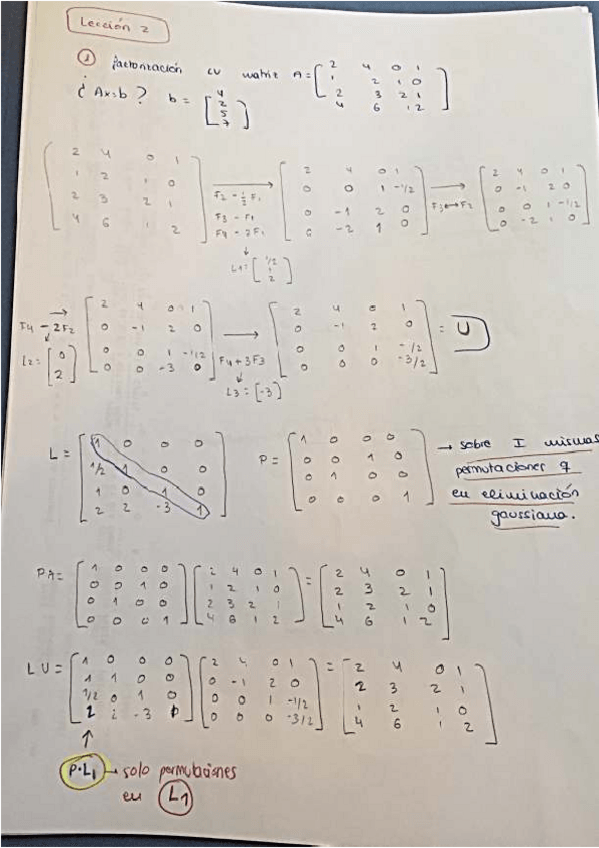 Lección 2
① factorización LU matriz A = [ 2 4 0 1
1 2 1 0
2 3 2 1
4 6 1 2 ]
¿ Ax=b ? b = [ 4
2
5
7 ]
( 2 4 0 1
1 2 1 0
2 3 2 1
4 6 1 2 ) → F2 - 1/2 F1
F3 - F1
F4 - 2F1
↓
L1 = [ 1/2
1
2 ]
[ 2 4 0 1
0 0 1 -1/2
0 -1 2 0
0 -2 1 0 ] → F3↔F2
[ 2 4 0 1
0 -1 2 0
0 0 1 -1/2
0 -2 1 0 ]
→ F4 - 2F2
↓
L2 = [ 0
2 ]
[ 2 4 0 1
0 -1 2 0
0 0 1 -1/2
0 0 -3 0 ] → F4+3F3
↓
L3 = [-3]
[ 2 4 0 1
0 -1 2 0
0 0 1 -1/2
0 0 0 -3/2 ] = U
L = [ 1 0 0 0
1/2 1 0 0
1 0 1 0
2 2 -3 1 ]
P = [ 1 0 0 0
0 0 1 0
0 1 0 0
0 0 0 1 ]
→ sobre I mismas
permutaciones q
en eliminación
gaussiana.
PA = [ 1 0 0 0
0 0 1 0
0 1 0 0
0 0 0 1 ] [ 2 4 0 1
1 2 1 0
2 3 2 1
4 6 1 2 ] = [ 2 4 0 1
2 3 2 1
1 2 1 0
4 6 1 2 ]
LU = [ 1 0 0 0
1 1 0 0
1/2 0 1 0
2 2 -3 1 ] [ 2 4 0 1
0 -1 2 0
0 0 1 -1/2
0 0 0 -3/2 ] = [ 2 4 0 1
2 3 2 1
1 2 1 0
4 6 1 2 ]
↑
P·L1 → solo permutaciones
en L1